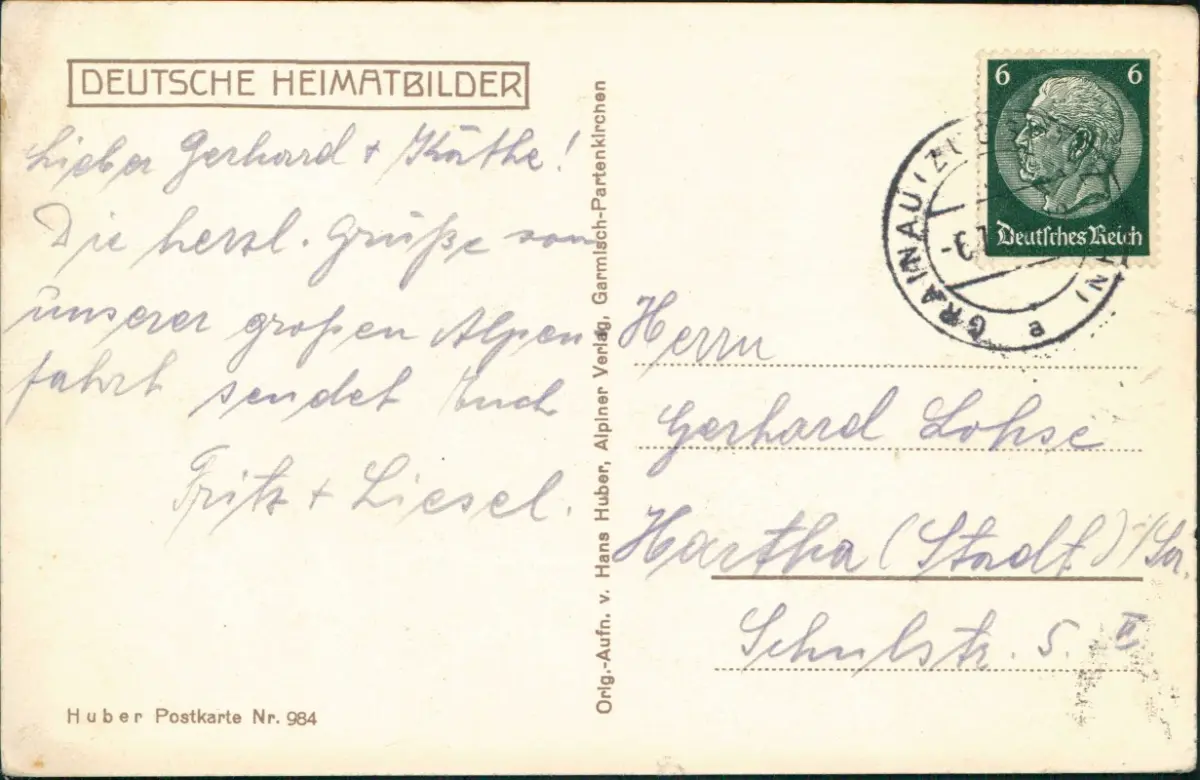 DEUTSCHE HEIMATBILDER
Lieber Gerhard + Käthe!
Die herzl. Grüße von
unserer großen Alpen
fahrt sendet Euch
Fritz + Liesel.
Huber Postkarte Nr. 984
Orig.-Aufn. v. Hans Huber, Alpiner Verlag, Garmisch-Partenkirchen
6 6
Deutsches Reich
GRAINAU (ZUG
a
Herrn
Gerhard Lohse
Hartha (Stadt) i/Sa.
Schulstr. 5. II